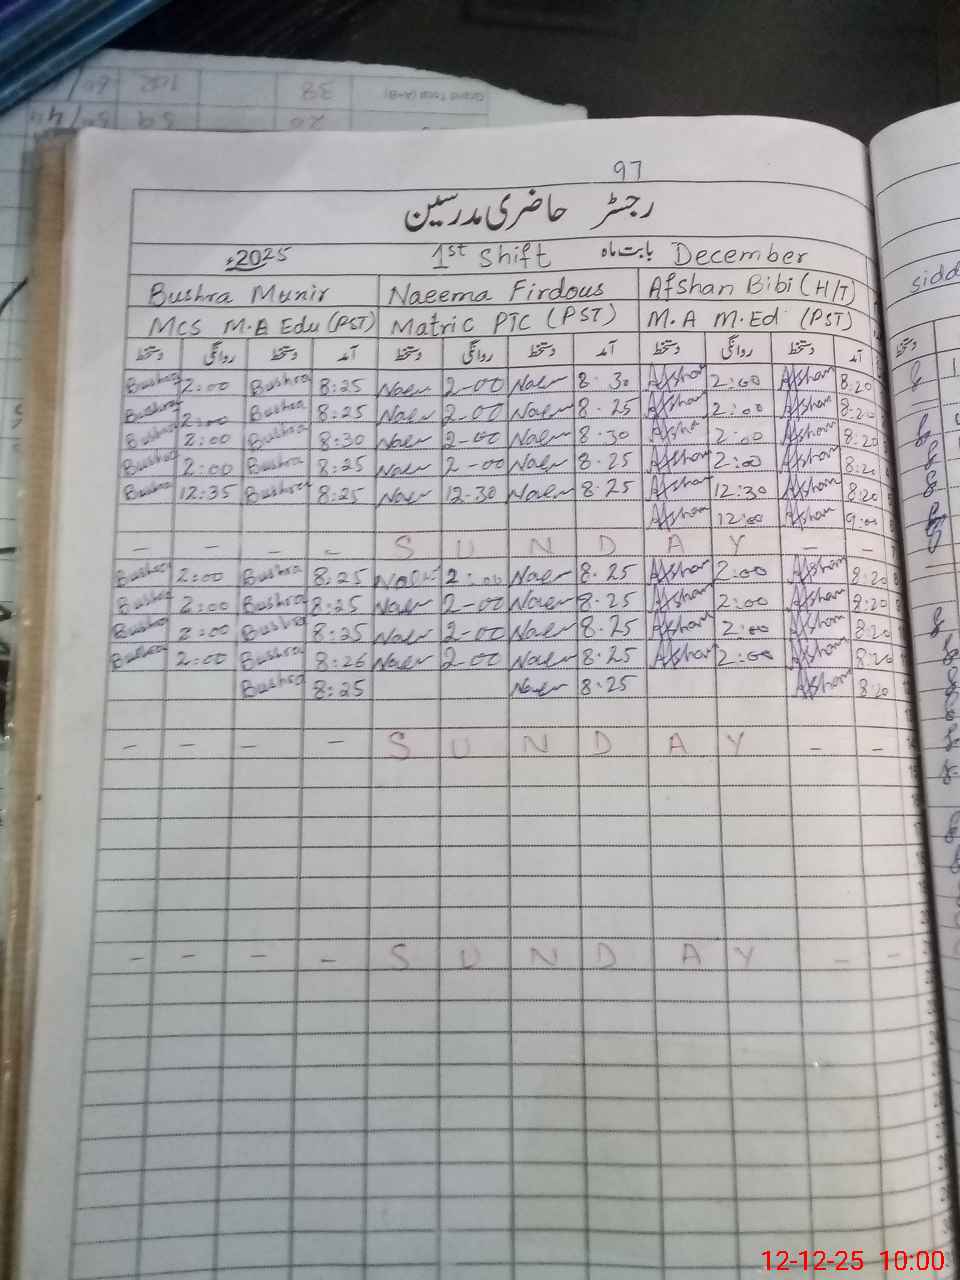 97
رجسٹر حاضری مدرسین
2025ء 1st Shift بابت ماہ December
Bushra Munir Naeema Firdous Afshan Bibi (H/T)
MCS M.A Edu (PST) Matric PTC (PST) M.A M.Ed (PST)
دستخط روانگی دستخط آمد دستخط روانگی دستخط آمد دستخط روانگی دستخط آمد
Bushra 2:00 Bushra 8:25 Naem 2-00 Naem 8.30 Afshan 2:00 Afshan 8:20
Bushra 2:00 Bushra 8:25 Naem 2-00 Naem 8.25 Afshan 2:00 Afshan 8:20
Bushra 2:00 Bushra 8:30 Naem 2-00 Naem 8.30 Afshan 2:00 Afshan 8:20
Bushra 2:00 Bushra 8:25 Naem 2-00 Naem 8.25 Afshan 2:00 Afshan 8:20
Bushra 12:35 Bushra 8:25 Naem 12-30 Naem 8.25 Afshan 12:30 Afshan 8:20
Afshan 12:00 Afshan 9:00
- - - - S U N D A Y - -
Bushra 2:00 Bushra 8:25 2:00 Naem 8.25 Afshan 2:00 Afshan 8:20
Bushra 2:00 Bushra 8:25 Naem 2-00 Naem 8.25 Afshan 2:00 Afshan 8:20
Bushra 2:00 Bushra 8:25 Naem 2-00 Naem 8.25 Afshan 2:00 Afshan 8:20
Bushra 2:00 Bushra 8:26 Naem 2-00 Naem 8.25 Afshan 2:00 Afshan 8:20
Bushra 8:25 Naem 8.25 Afshan 8:20
- - - - S U N D A Y - -
- - - - S U N D A Y - -
12-12-25 10:00